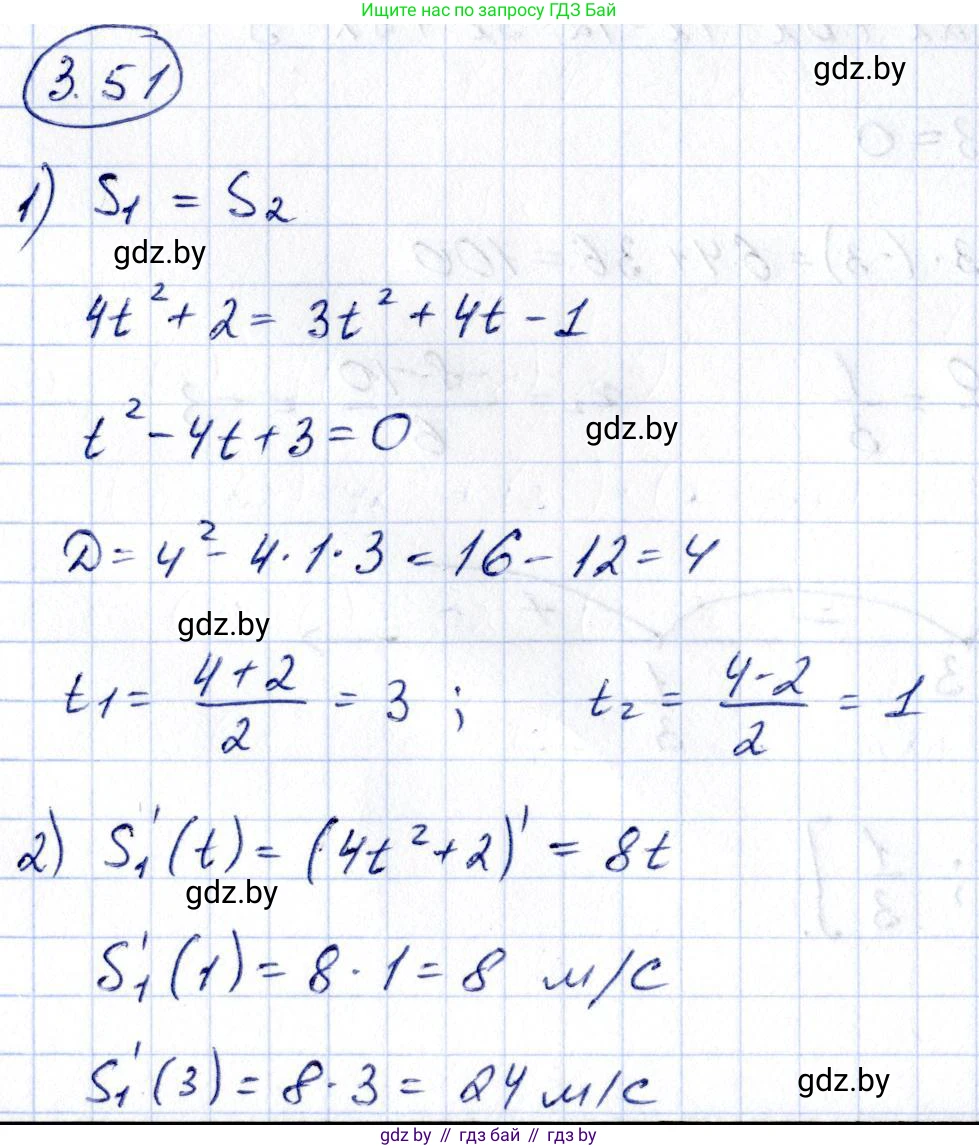 Ищите нас по запросу ГДЗ Бай
3.51
gdz.by
1) S₁ = S₂
gdz.by
4t² + 2 = 3t² + 4t - 1
t² - 4t + 3 = 0
gdz.by
D = 4² - 4·1·3 = 16 - 12 = 4
gdz.by
t₁ = (4+2)/2 = 3 ; t₂ = (4-2)/2 = 1
2) S₁'(t) = (4t² + 2)' = 8t
gdz.by
S₁'(1) = 8·1 = 8 м/с
S₁'(3) = 8·3 = 24 м/с
gdz.by
gdz.by // гдз бай // гдз.by